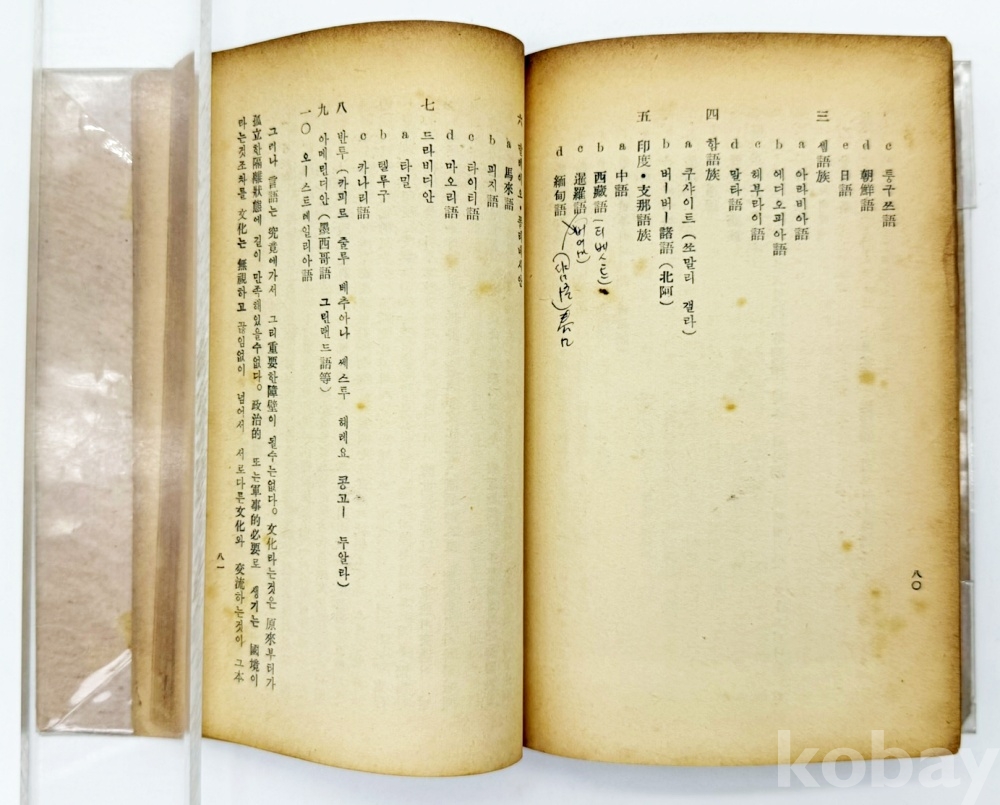 c 퉁구쓰語
d 朝鮮語
e 日語
三 쎔語族
a 아라비아語
b 에디오피아語
c 헤부라이語
d 말타語
四 함語族
a 쿠샤이트(쏘말리 갤라)
b 버ー버ー諸語(北阿)
五 印度・支那語族
a 中語
b 西藏語(티베스트)
c 暹羅語
d 緬甸語
八〇
六
a 馬來語
b 피지語
c 타이티語
d 마오리語
七 드라비디안
a 타밀
b 텔루구
c 카나리語
八 반투(카피르 줄루 베추아나 쎄스투 헤레요 콩고ー 두알라)
九 아메린디안(墨西哥語 그린랜드語等)
一〇 오ー스트레일리아語
그러나 言語는 究竟에가서 그리重要한障壁이 될수는없다。文化라는것은 原來부터가
孤立한隔離狀態에 길이 만족해있을수없다。政治的 또는軍事的必要로 생기는 國境이
라는것조차를 文化는 無視하고 끊임없이 넘어서 서로다른文化와 交流하는것이 그本
八一
kobay